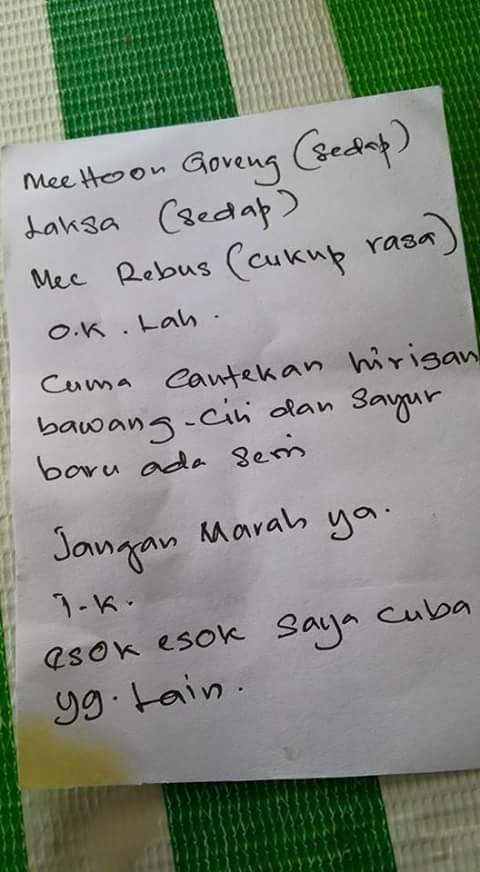 MeeHoon Goreng (sedap)
Laksa (sedap)
Mee Rebus (cukup rasa)
O.K. Lah.
Cuma Cantekan hirisan
bawang-cili dan sayur
baru ada seri
Jangan Marah ya.
T.K.
esok esok saya cuba
yg. Lain.